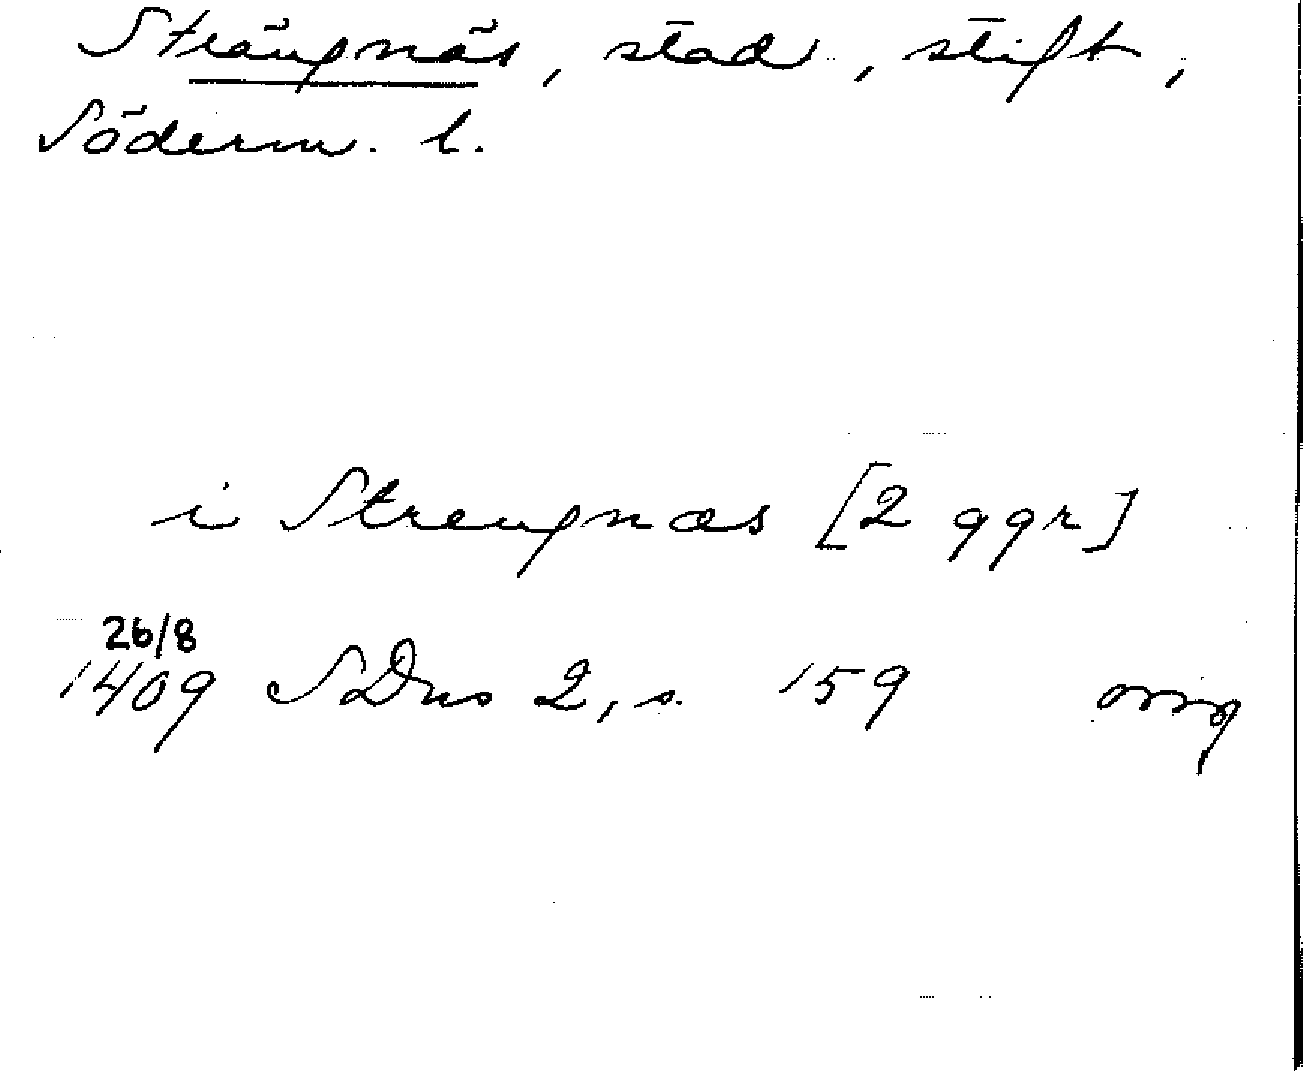 Strängnäs, stad, stift,
Söderm. l.
i Strengnæs [2 ggr]
26/8
1409 SDns 2, s. 159 orig